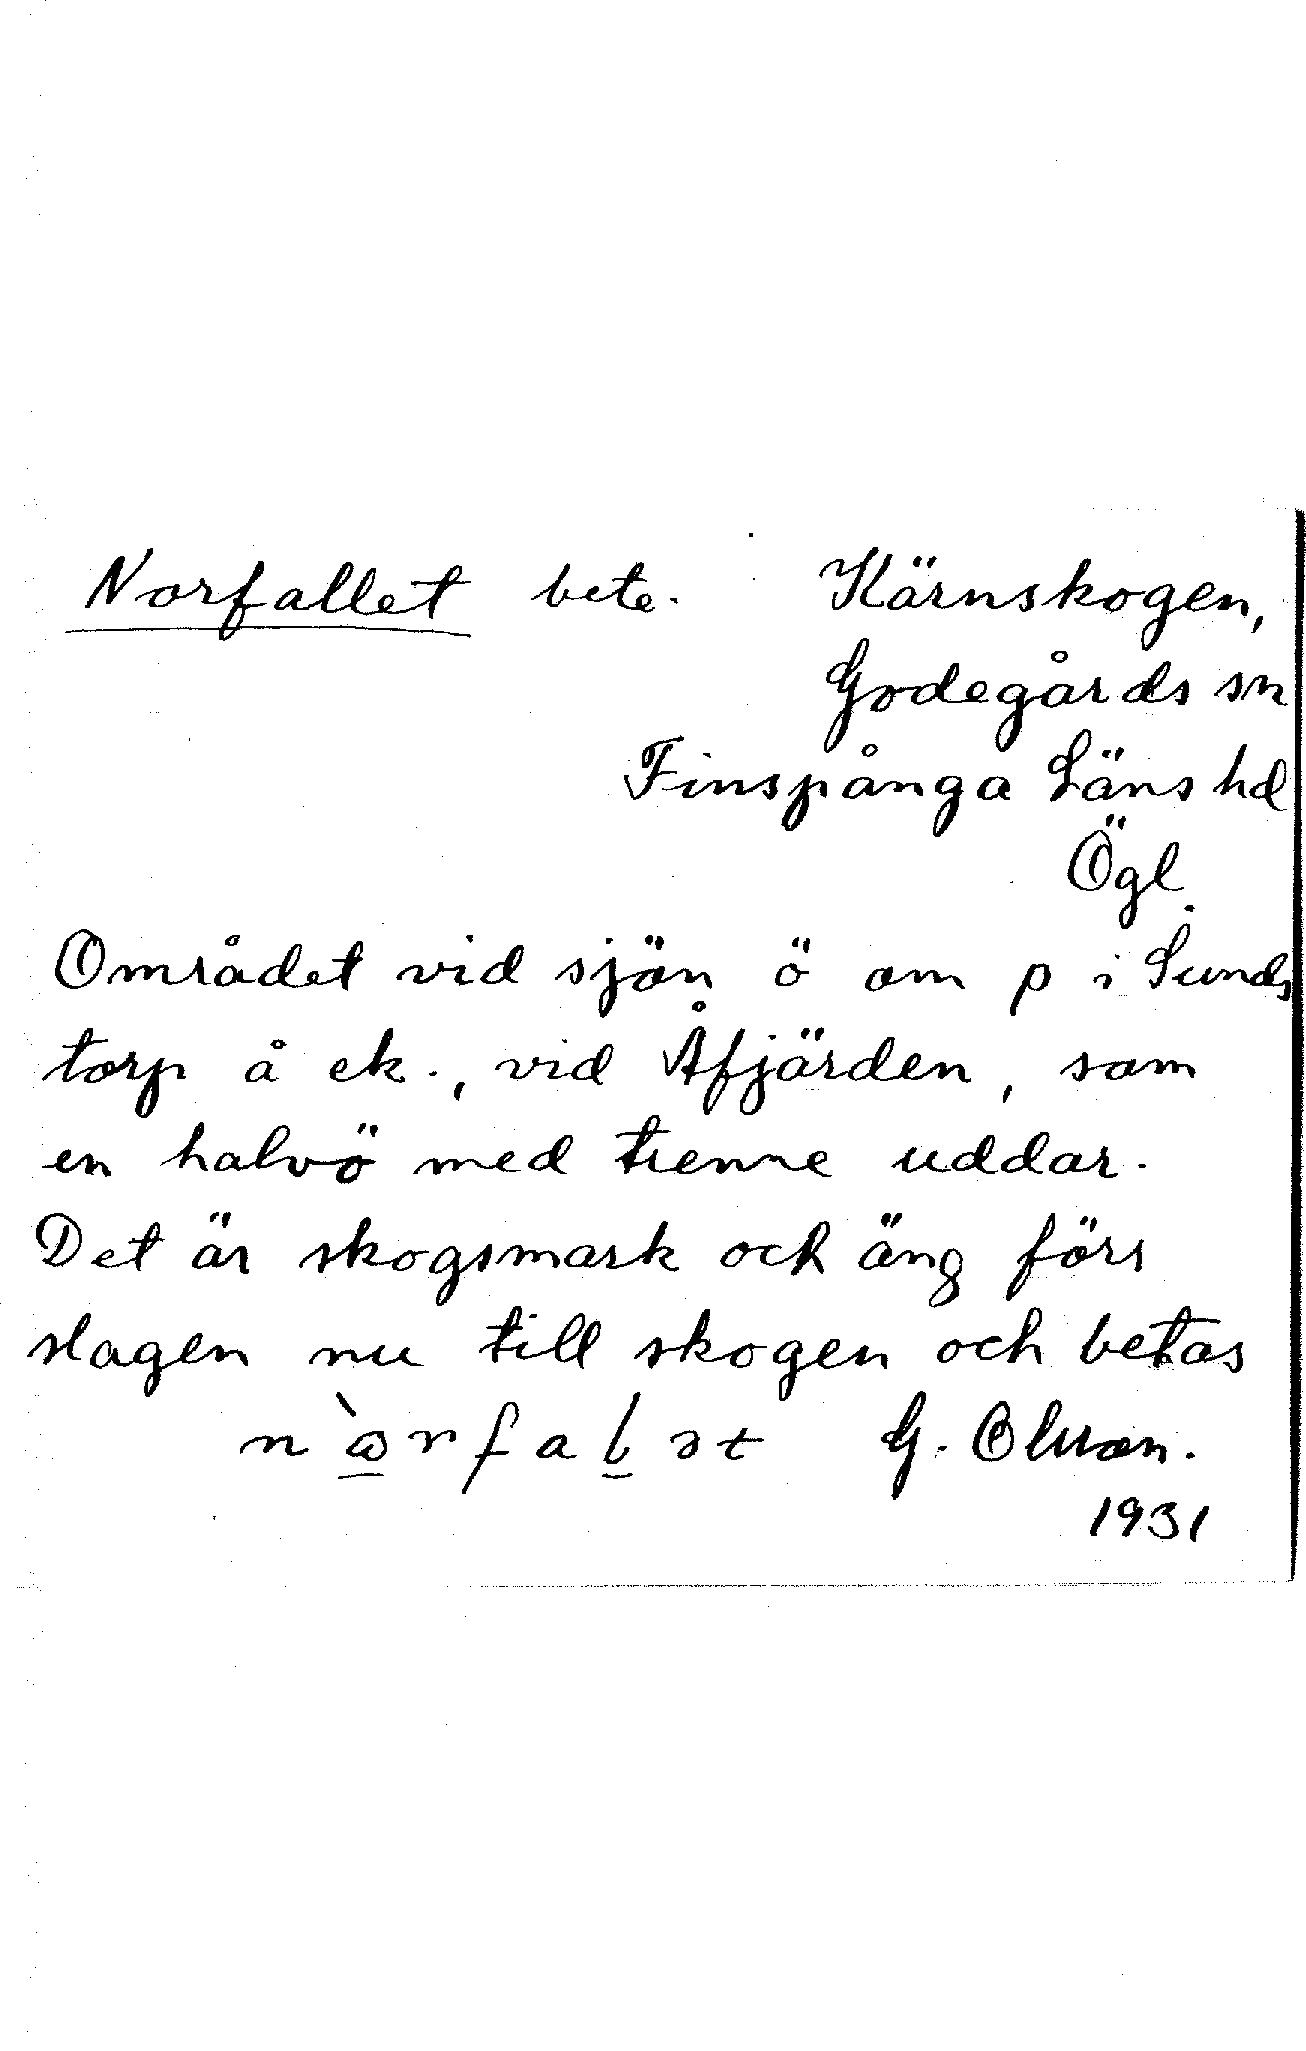 Norfallet bete. Kärnskogen,
Godegårds sn
Finspånga Läns hd
Ögl.
Området vid sjön ö om p i Sunds
torp å ek., vid Åfjärden, som
en halvö med trenne uddar.
Det är skogsmark och äng förr
slagen nu till skogen och betas
G. Olsson.
1931